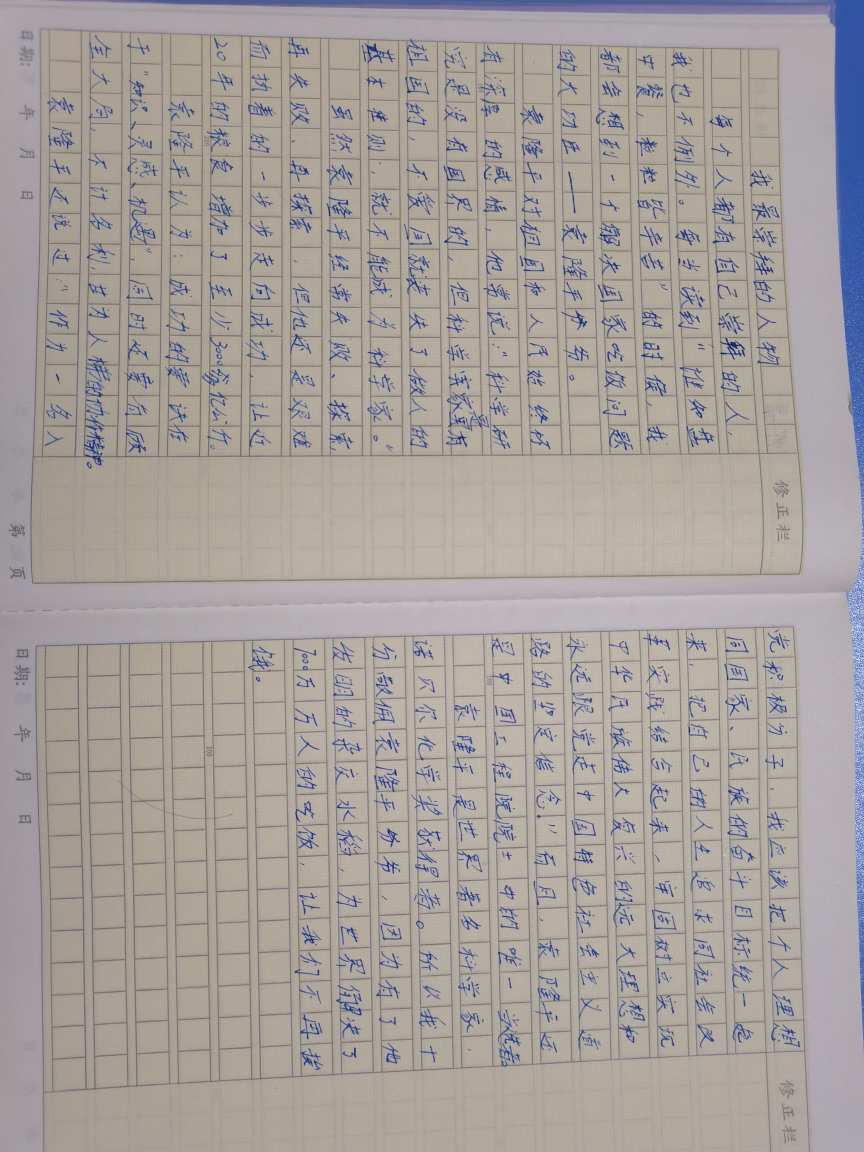 我最崇拜的人物
每个人都有自己崇拜的人，
我也不例外。每当读到“谁知盘
中餐，粒粒皆辛苦”的时候，我
都会想到一个解决国家吃饭问题
的大功臣——袁隆平爷爷。
袁隆平对祖国和人民始终怀
有深厚的感情，他常说：“科学研
究是没有国界的，但科学家是有
祖国的，不爱国就丧失了做人的
基本准则，就不能成为科学家。”
虽然袁隆平经常失败、探索，
再失败、再探索，但他还是艰难
而执着的一步步走向成功，让近
20年的粮食增加了至少3000多亿公斤。
袁隆平认为：成功的要诀在
于“知识、灵感、机遇”，同时还要有顾
全大局，不计名利，甘为人梯的协作精神。
袁隆平还说过：“作为一名入
修正栏
日期: 年 月 日
第 页
党积极分子，我应该把个人理想
同国家、民族的奋斗目标统一起
来，把自己的人生追求同社会改
革实践结合起来，牢固树立实现
中华民族伟大复兴的远大理想和
永远跟党走中国特色社会主义道
路的坚定信念！”而且，袁隆平还
是中国工程院院士中的唯一当选者。
袁隆平是世界著名科学家，
诺贝尔化学奖获得者。所以我十
分敬佩袁隆平爷爷，因为有了他
发明的杂交水稻，为世界解决了
7000万万人的吃饭，让我们不再挨
饿。
修正栏
日期: 年 月 日